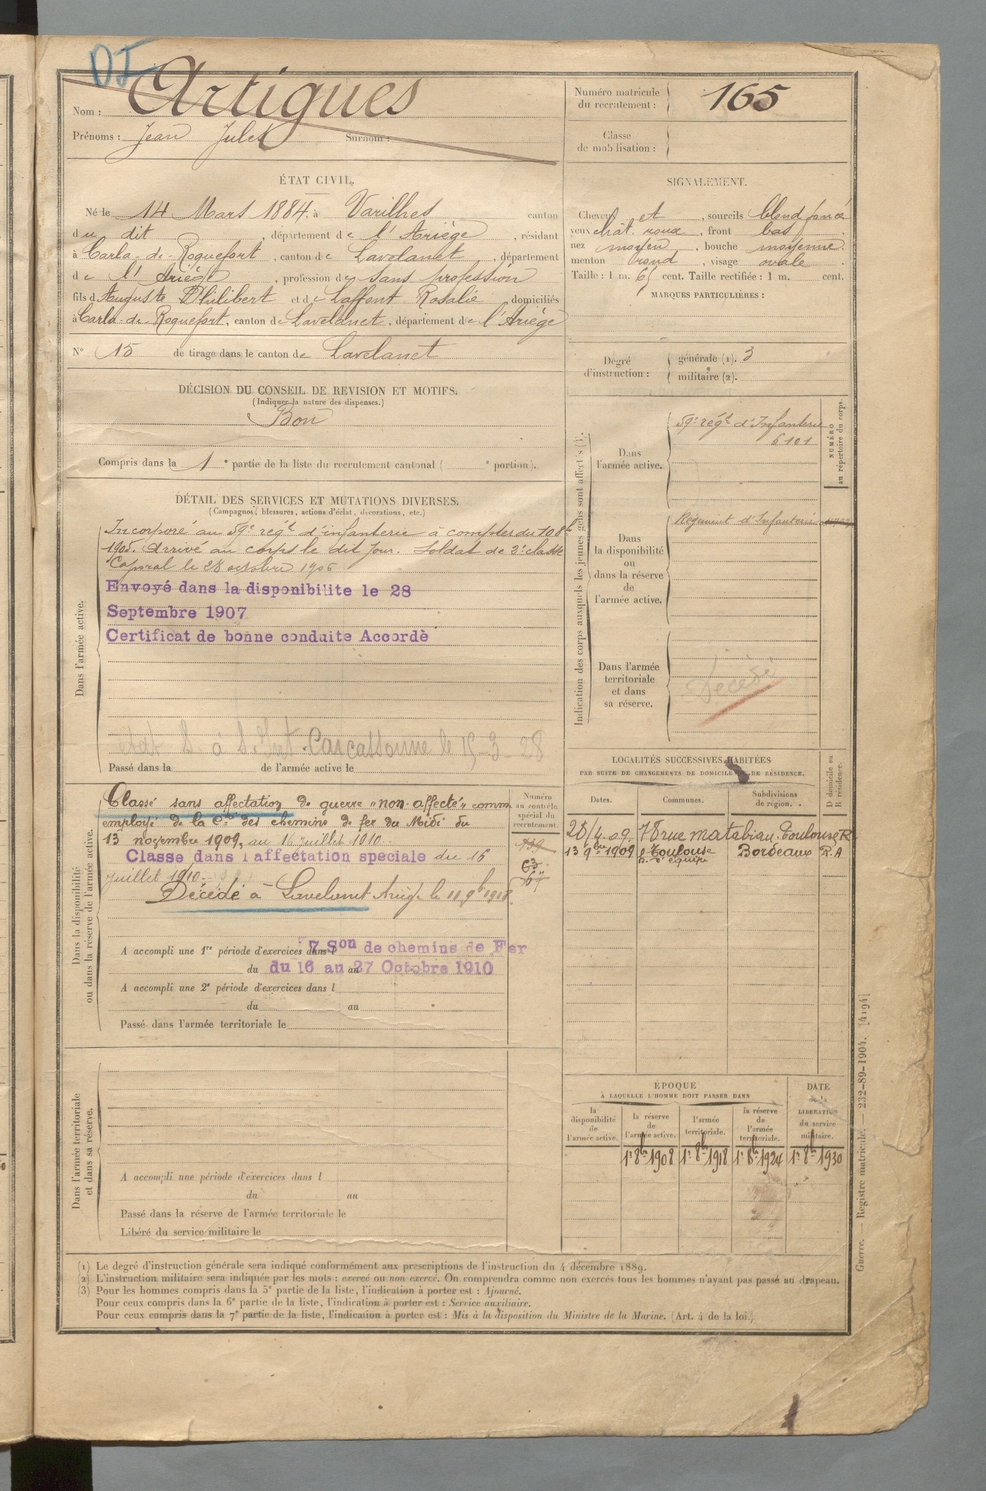 DI
Nom : Artigues
Prénoms : Jean Jules Surnom :
Numéro matricule
du recrutement : 165
Classe
de mobilisation :
ÉTAT CIVIL.
Né le 14 Mars 1884, à Varilhes canton
du dit , département de l'Ariège , résidant
à Carla-de-Roquefort , canton de Lavelanet , département
de l'Ariège , profession de sans profession
fils d'Auguste Philibert et de Laffont Rosalie domiciliés
à Carla-de-Roquefort, canton de Lavelanet, département de l'Ariège
N° 15 de tirage dans le canton de Lavelanet
SIGNALEMENT.
Cheveux et , sourcils blond foncé
yeux chât. roux , front bas
nez moyen , bouche moyenne
menton rond , visage ovale
Taille : 1 m. 65 cent. Taille rectifiée : 1 m. cent.
MARQUES PARTICULIÈRES :
Degré
d'instruction :
générale (1). 3
militaire (2).
DÉCISION DU CONSEIL DE REVISION ET MOTIFS.
(Indiquer la nature des dispenses.)
Bon
Compris dans la 1e partie de la liste du recrutement cantonal ( e portion).
DÉTAIL DES SERVICES ET MUTATIONS DIVERSES.
(Campagnes, blessures, actions d'éclat, décorations, etc.)
Dans l'armée active.
Incorporé au 59e régt d'infanterie à compter du 10 8b
1905. Arrivé au corps le dit jour. Soldat de 2e classe
Caporal le 28 octobre 1906
Envoyé dans la disponibilite le 28
Septembre 1907
Certificat de bonne conduite Accordè
Carcassonne le 15-3-28
Passé dans la de l'armée active le
Indication des corps auxquels les jeunes gens sont affectés
NUMÉRO
au répertoire du corps.
Dans
l'armée active.
59e régt d'Infanterie
6101
Dans
la disponibilité
ou
dans la réserve
de
l'armée active.
Régiment d'Infanterie
Dans l'armée
territoriale
et dans
sa réserve.
Décédé
Dans la disponibilité
ou dans la réserve de l'armée active.
Classé sans affectation de guerre "non affecté" comme
employé de la Cie des chemins de fer du Midi du
13 novembre 1909, au 16 juillet 1910.
Classe dans l affectation speciale du 16
juillet 1910.
Décédé à Lavelanet Ariège le 11 9b 1918.
Numéro
au contrôle
spécial du
recrutement.
A accompli une 1re période d'exercices dans 7 Son de chemins de Fer
du du 16 au 27 Octobre 1910
A accompli une 2e période d'exercices dans l
du au
Passé dans l'armée territoriale le
LOCALITÉS SUCCESSIVES HABITÉES
PAR SUITE DE CHANGEMENTS DE DOMICILE OU DE RÉSIDENCE.
Dates.
Communes.
Subdivisions
de région.
D domicile ou
R résidence.
28/4.09. 78 rue matabiau. Toulouse R
13 9bre 1909 Toulouse Bordeaux R.A
d'équipe
ÉPOQUE
À LAQUELLE L'HOMME DOIT PASSER DANS
la
disponibilité
de
l'armée active.
la réserve
de
l'armée active.
l'armée
territoriale.
la réserve
de
l'armée
territoriale.
DATE
de la
LIBÉRATION
du service
militaire.
1er 8b 1908 1er 8b 1918 1er 8b 1924 1er 8b 1930
Dans l'armée territoriale
et dans sa réserve.
A accompli une période d'exercices dans l
du au
Passé dans la réserve de l'armée territoriale le
Libéré du service militaire le
(1) Le degré d'instruction générale sera indiqué conformément aux prescriptions de l'instruction du 4 décembre 1889.
(2) L'instruction militaire sera indiquée par les mots : exercé ou non exercé. On comprendra comme non exercés tous les hommes n'ayant pas passé au drapeau.
(3) Pour les hommes compris dans la 5e partie de la liste, l'indication à porter est : Ajourné.
Pour ceux compris dans la 6e partie de la liste, l'indication à porter est : Service auxiliaire.
Pour ceux compris dans la 7e partie de la liste, l'indication à porter est : Mis à la disposition du Ministre de la Marine. (Art. 4 de la loi.)
Guerre. Registre matricule. — 232-89-1904. [4194]